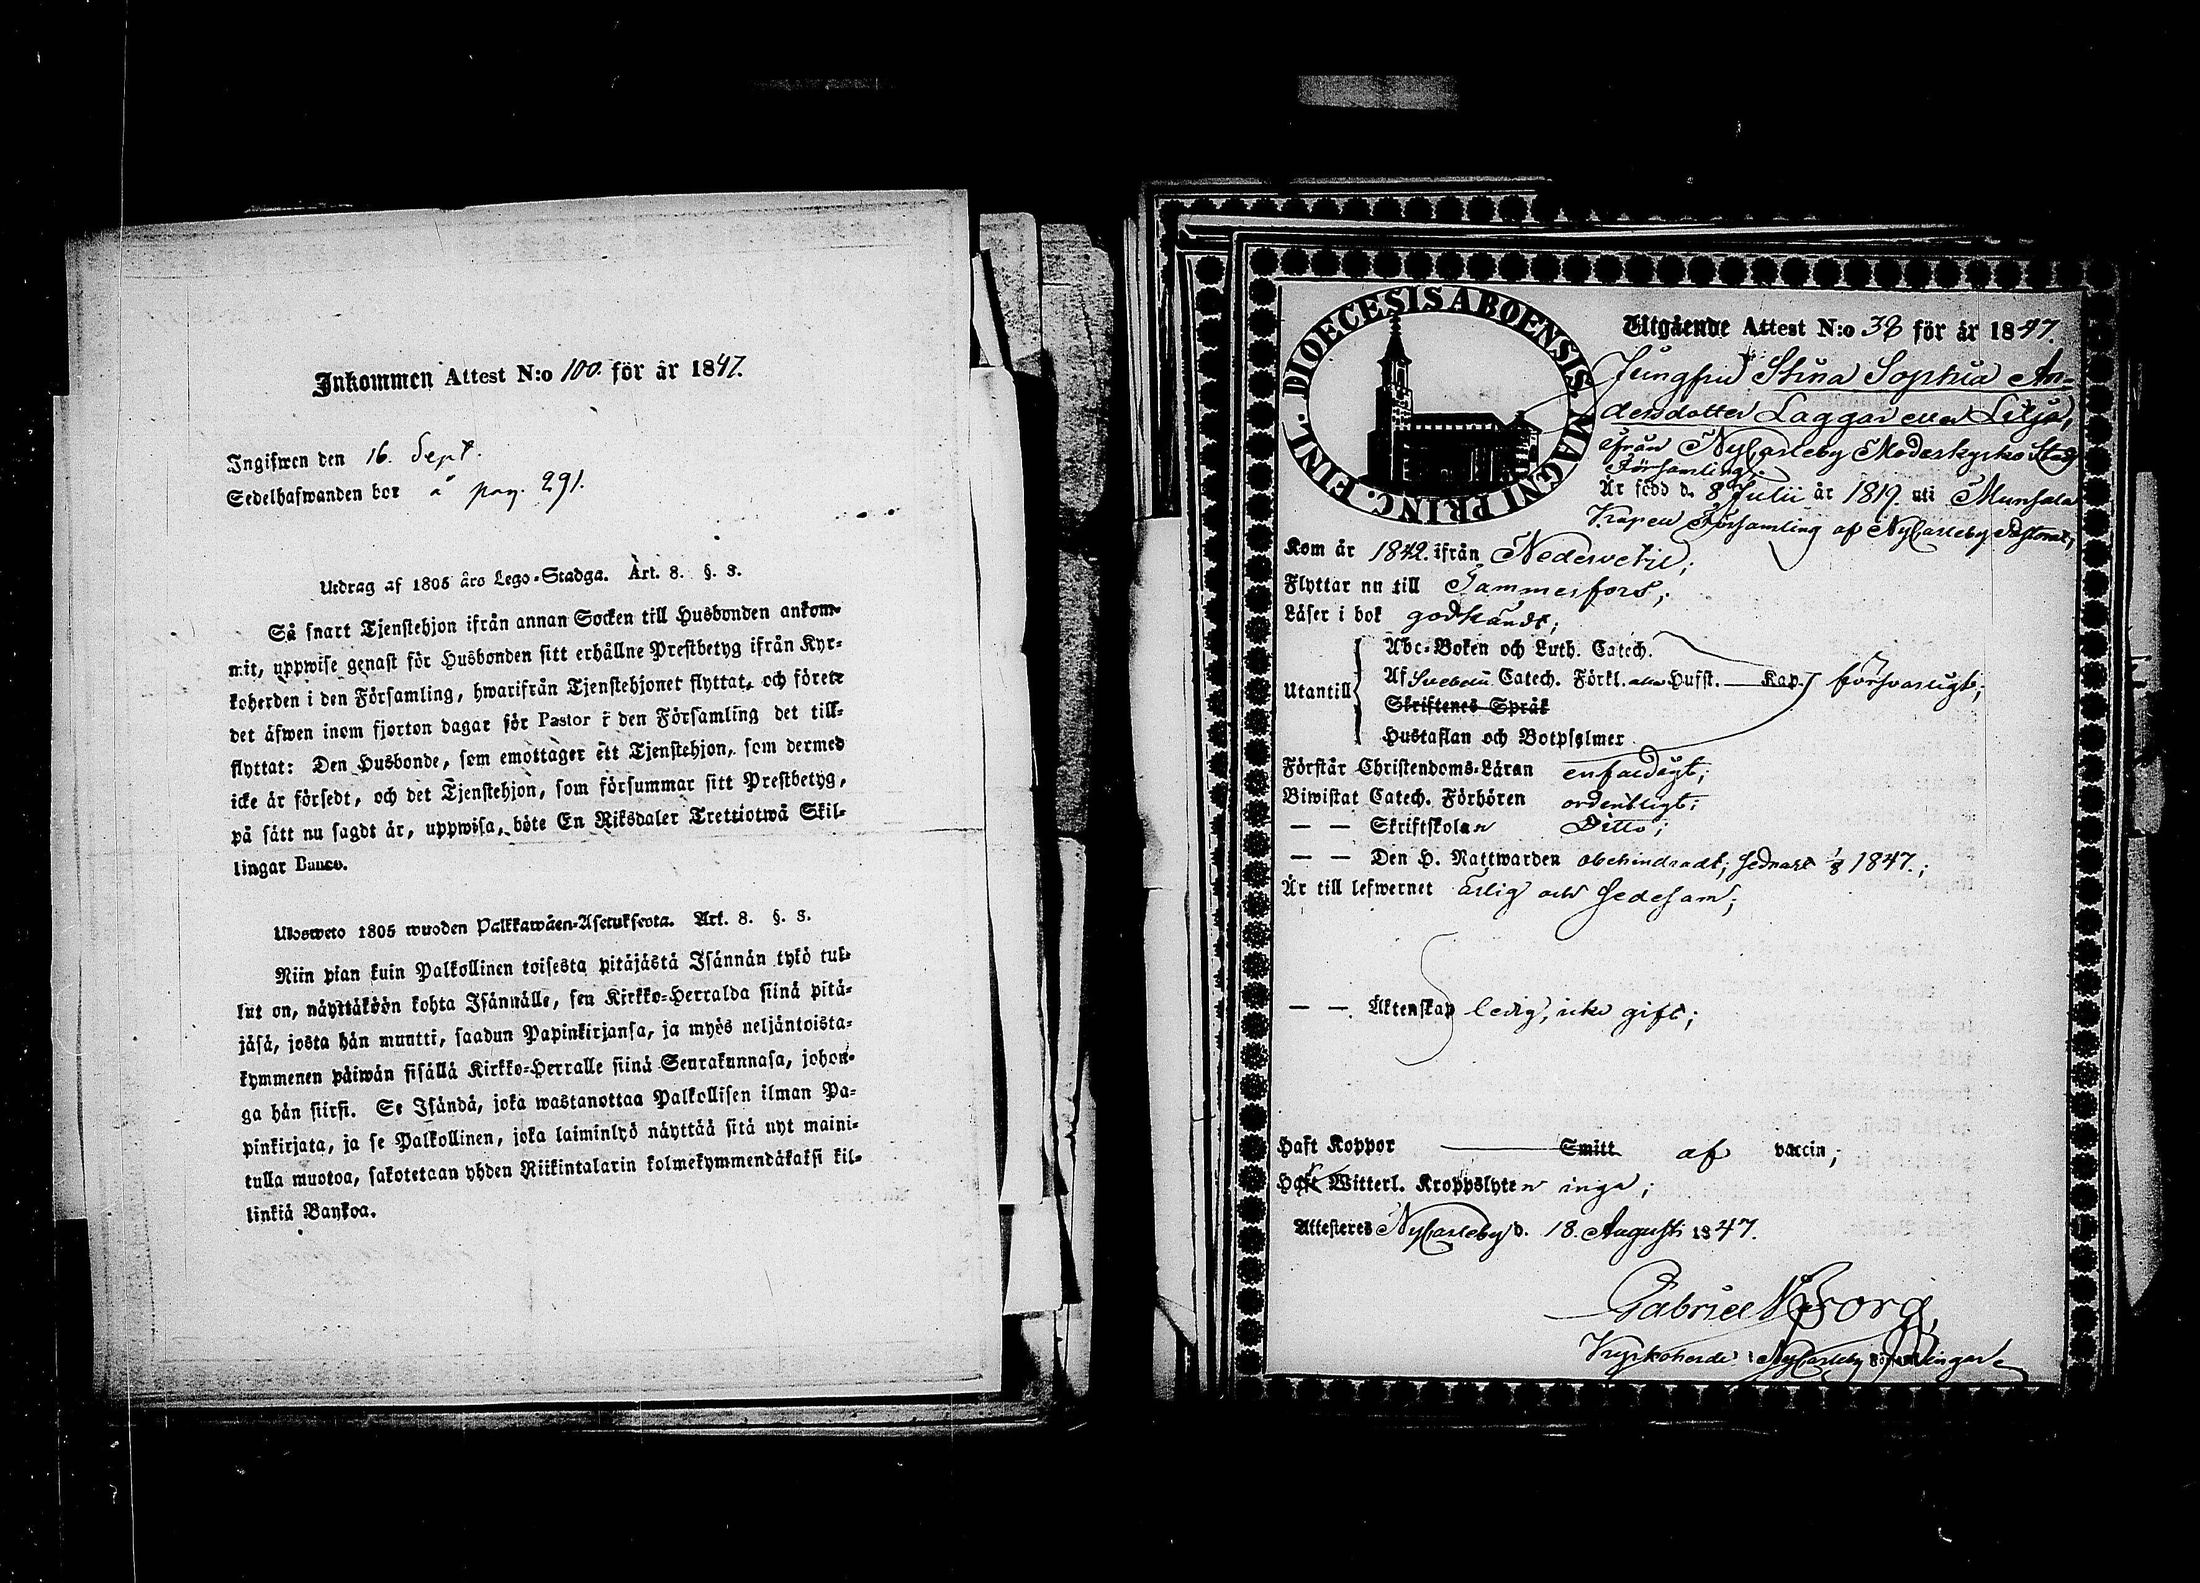 Inkommen Attest N:o 100. för år 1847.
Ingifwen den 16. Sept.
Sedelhafwanden bor å pag. 291.
Utdrag af 1805 års Lego-Stadga. Art. 8. §. 3.
Så snart Tjenstehjon ifrån annan Socken till Husbonden ankom-
mit, uppwise genast för Husbonden sitt erhållne Prestbetyg ifrån Kyr-
koherden i den Församling, hwarifrån Tjenstehjonet flyttat, och förete
det äfwen inom fjorton dagar för Pastor i den Församling det till-
flyttat: Den Husbonde, som emottager ett Tjenstehjon, som dermed
icke är försedt, och det Tjenstehjon, som försummar sitt Prestbetyg,
på sätt nu sagdt är, uppwisa, böte En Riksdaler Trettiotwå Skil-
lingar Banco.
Ulosweto 1805 wuoden Palkkawäen-Asetuksesta. Art. 8. §. 3.
Niin pian kuin Palkollinen toisesta pitäjästä Isännän tykö tul-
lut on, näyttäköön kohta Isännälle, sen Kirkko-Herralda siinä pitä-
jäsä, josta hän muutti, saadun Papinkirjansa, ja myös neljäntoista-
kymmenen päiwän sisällä Kirkko-Herralle siinä Seurakunnasa, johon-
ga hän siirsi. Se Isändä, joka wastanottaa Palkollisen ilman Pa-
pinkirjata, ja se Palkollinen, joka laiminlyö näyttää sitä nyt maini-
tulla muotoa, sakotetaan yhden Riikintalarin kolmekymmendäkaksi kil-
linkiä Bankoa.
DIOECESIS ABOENSIS MAGNI PRINC. FINL.
Utgående Attest N:o 38 för år 1847.
Jungfru Stina Sophia An-
dersdotter Laggar eller Lilja,
ifrån NyCarleby Moderkyrko Stads
Församling.
Är född d. 8 Julii år 1819. uti Munsala
Kapell Församling af NyCarleby Pastorat;
Kom år 1842. ifrån Nedervetil;
Flyttar nu till Tammerfors;
Läser i bok godkändt;
Abc-Boken och Luth. Catech.
Utantill Af Svebelii Catech. Förkl. Husst. Kap. försvarligt;
Skriftenes Språk
Hustaflan och Botpsalmer
Förstår Christendoms-Läran enfaldigt;
Biwistat Catech. Förhören ordentligt;
— — Skriftskolan Ditto;
— — Den H. Nattwarden obehindradt, sednast 1/8 1847.;
Är till lefwernet ärlig och sedesam;
— — Äktenskap ledig, icke gift;
Haft Koppor Smitt af vaccin;
Haft Witterl. Kroppslyten inga;
Attesteras NyCarleby d. 18. Augusti 1847.
Gabriel Borg,
Kyrkoherde i NyCarleby Församlingar